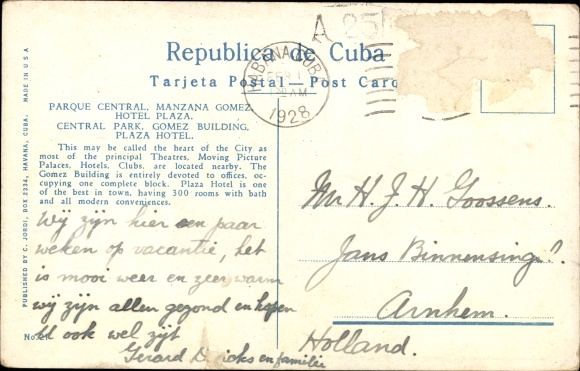 A 25
Republica de Cuba
Tarjeta Postal — Post Card
HABANA, CUBA
FEB 1
1928
PARQUE CENTRAL, MANZANA GOMEZ,
HOTEL PLAZA.
CENTRAL PARK, GOMEZ BUILDING,
PLAZA HOTEL.
This may be called the heart of the City as
most of the principal Theatres, Moving Picture
Palaces, Hotels, Clubs, are located nearby. The
Gomez Building is entirely devoted to offices, oc-
cupying one complete block. Plaza Hotel is one
of the best in town, having 300 rooms with bath
and all modern conveniences.
PUBLISHED BY C. JORDI, BOX 2334, HAVANA, CUBA. MADE IN U S A
Wij zijn hier een paar
weken op vacantie, het
is mooi weer en zeer warm
wij zijn allen gezond en hopen
U ook wel zijt
Gerard en familie
No.
Mr H. J. H Goossens.
Jans Binnensingel
Arnhem.
Holland.